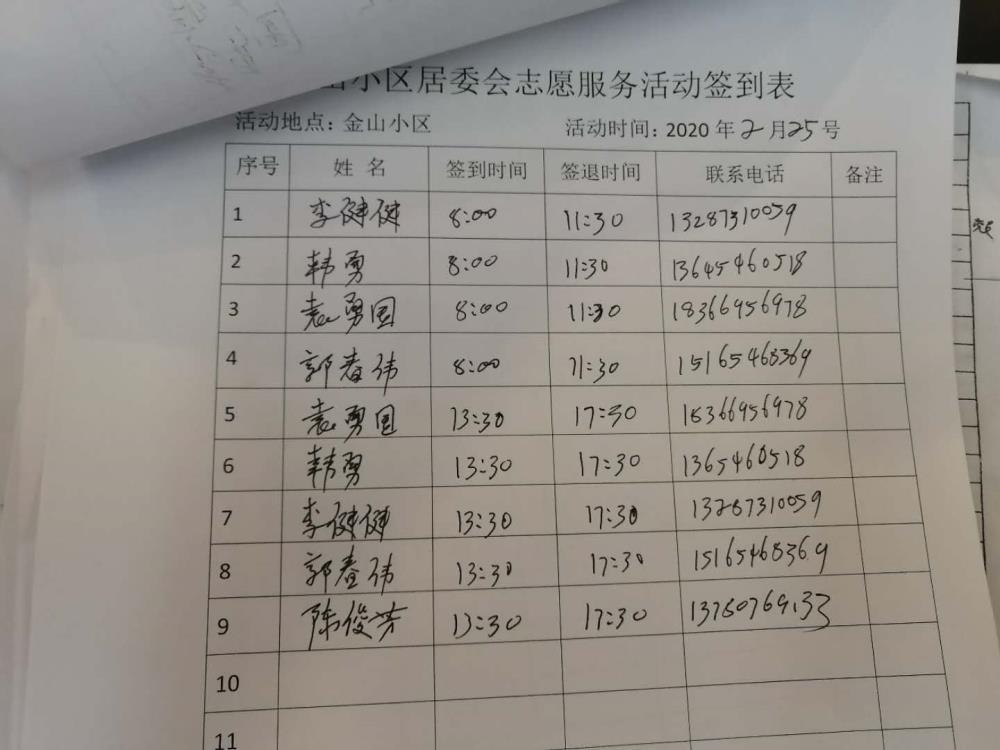 山小区居委会志愿服务活动签到表
活动地点：金山小区 活动时间：2020 年 2 月 25 号
序号 姓 名 签到时间 签退时间 联系电话 备注
1 李健健 8:00 11:30 13287310059
2 韩勇 8:00 11:30 13645460518
3 袁勇国 8:00 11:30 18366956978
4 郭春伟 8:00 11:30 15165468369
5 袁勇国 13:30 17:30 18366956978
6 韩勇 13:30 17:30 1365460518
7 李健健 13:30 17:30 13287310059
8 郭春伟 13:30 17:30 15165468369
9 陈俊芳 13:30 17:30 13780769133
10
11